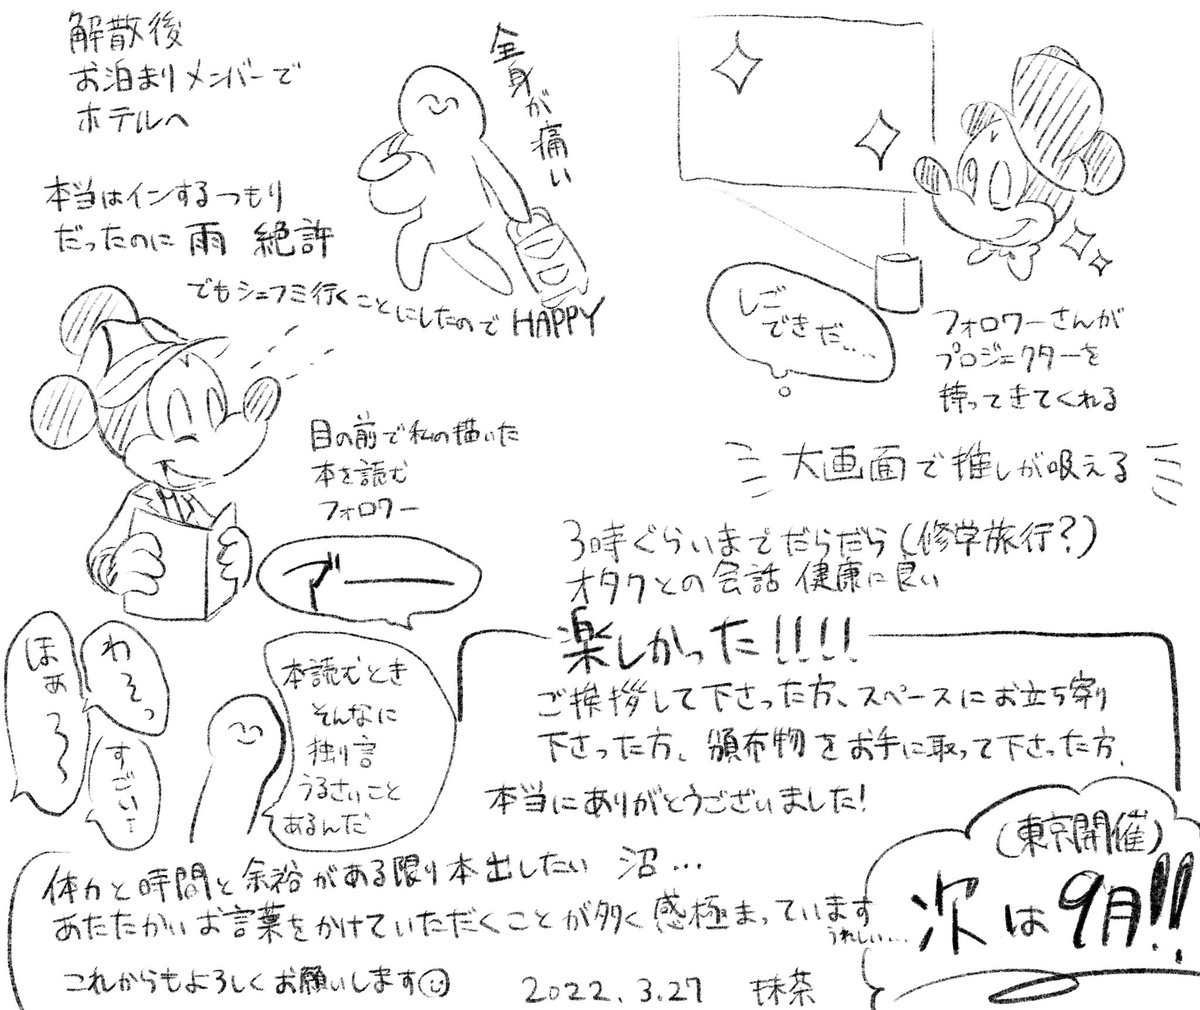 解散後
お泊まりメンバーで
ホテルへ
全身が痛い
本当はインするつもり
だったのに 雨 絶許
でもシェフミ行くことにしたので HAPPY
しご
できだ....
フォロワーさんが
プロジェクターを
持ってきてくれる
大画面で推しが吸える
目の前で私の描いた
本を読む
フォロワー
3時ぐらいまでだらだら(修学旅行?)
オタクとの会話 健康に良い
わそっ
ほぁ〜〜
すごい!
本読むとき
そんなに
独り言
うるさいこと
あるんだ
楽しかった!!!!
ご挨拶して下さった方、スペースにお立ち寄り
下さった方、頒布物をお手に取って下さった方、
本当にありがとうございました!
体力と時間と余裕がある限り本出したい 沼...
あたたかいお言葉をかけていただくことが多く感極まっています
うれしい...
これからもよろしくお願いします
2022.3.27 抹茶
(東京開催)
次は9月!!